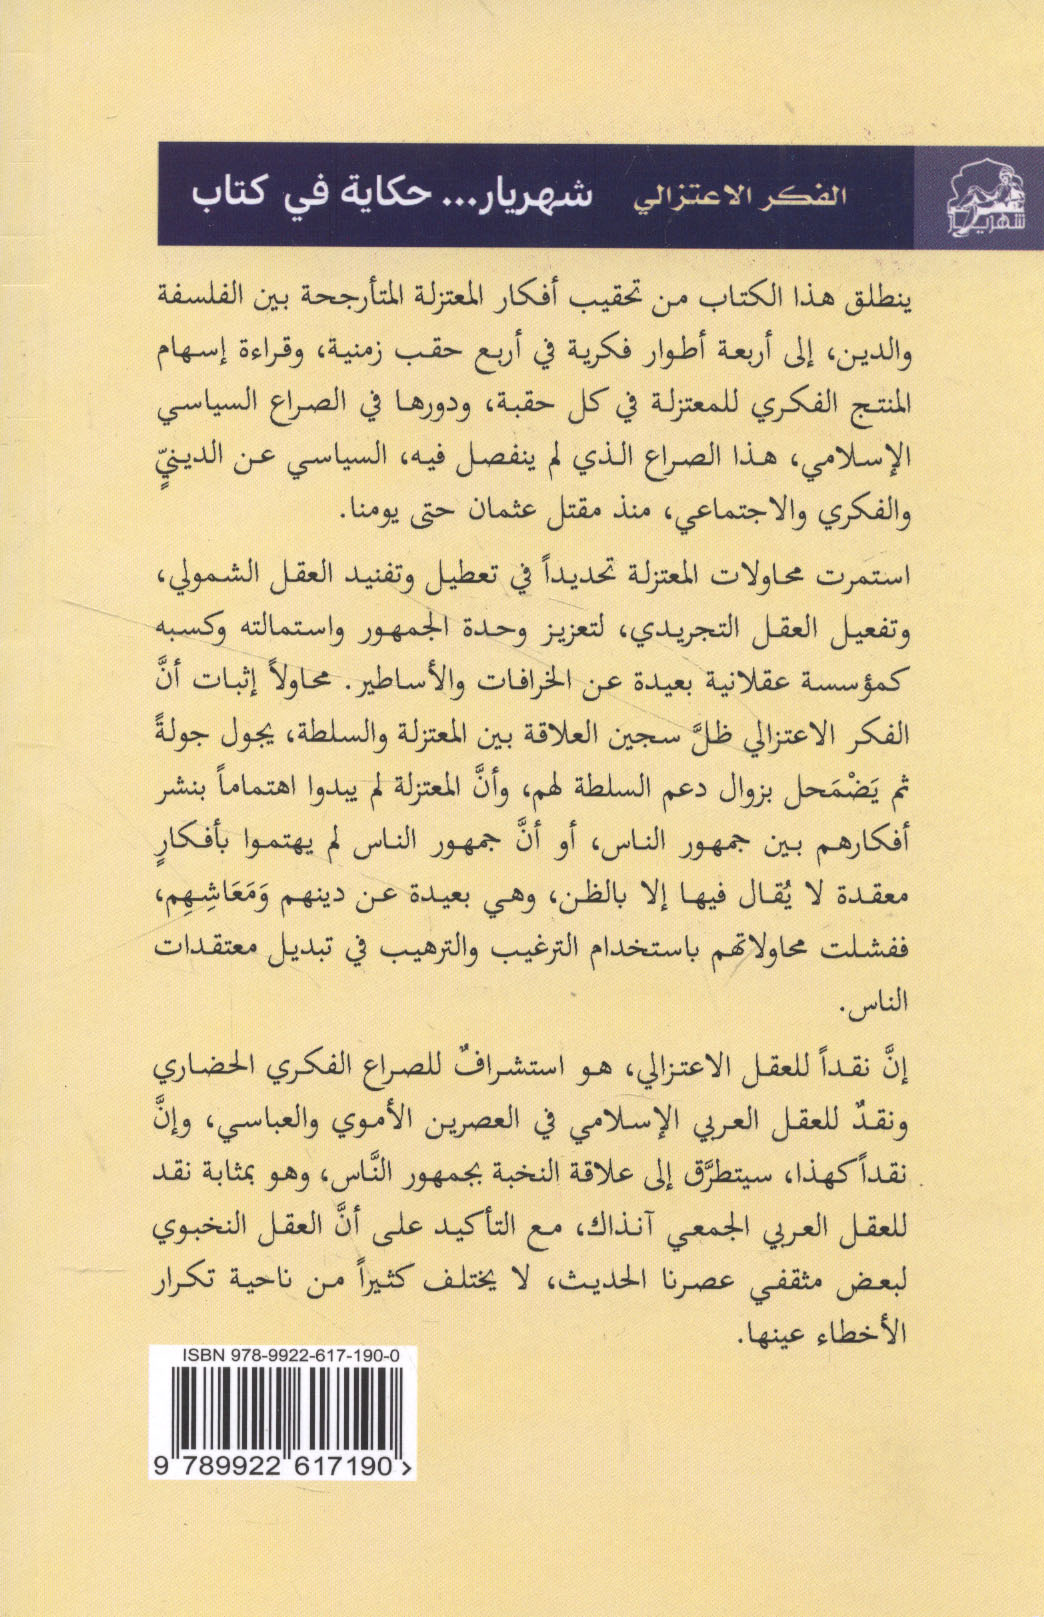 الفكر الاعتزالي شهريار... حكاية في كتاب
شهريار
ينطلق هذا الكتاب من تحقيب أفكار المعتزلة المتأرجحة بين الفلسفة
والدين، إلى أربعة أطوار فكرية في أربع حقب زمنية، وقراءة إسهام
المنتج الفكري للمعتزلة في كل حقبة، ودورها في الصراع السياسي
الإسلامي، هذا الصراع الذي لم ينفصل فيه، السياسي عن الدينيّ
والفكري والاجتماعي، منذ مقتل عثمان حتى يومنا.
استمرت محاولات المعتزلة تحديداً في تعطيل وتفنيد العقل الشمولي،
وتفعيل العقل التجريدي، لتعزيز وحدة الجمهور واستمالته وكسبه
كمؤسسة عقلانية بعيدة عن الخرافات والأساطير. محاولاً إثبات أنَّ
الفكر الاعتزالي ظلَّ سجين العلاقة بين المعتزلة والسلطة، يجول جولةً
ثم يَضْمَحل بزوال دعم السلطة لهم، وأنَّ المعتزلة لم يبدوا اهتماماً بنشر
أفكارهم بين جمهور الناس، أو أنَّ جمهور الناس لم يهتموا بأفكارٍ
معقدة لا يُقال فيها إلا بالظن، وهي بعيدة عن دينهم وَمَعَاشِهِم،
ففشلت محاولاتهم باستخدام الترغيب والترهيب في تبديل معتقدات
الناس.
إنَّ نقداً للعقل الاعتزالي، هو استشرافٌ للصراع الفكري الحضاري
ونقدٌ للعقل العربي الإسلامي في العصرين الأموي والعباسي، وإنَّ
نقداً كهذا، سيتطرَّق إلى علاقة النخبة بجمهور النَّاس، وهو بمثابة نقد
للعقل العربي الجمعي آنذاك، مع التأكيد على أنَّ العقل النخبوي
لبعض مثقفي عصرنا الحديث، لا يختلف كثيراً من ناحية تكرار
الأخطاء عينها.
ISBN 978-9922-617-190-0
9 789922 617190 >